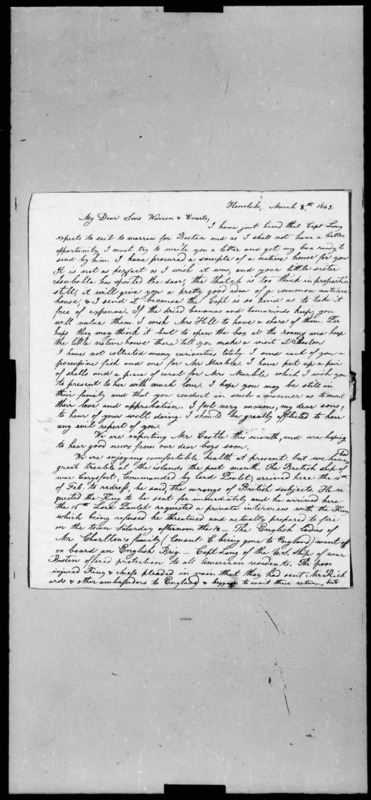 Honolulu, March 8th 1843.
My Dear Sons Warren & Evarts,
I have just heard that Capt Long
expects to sail to morrow for Boston and as I shall not have a better
opportunity I must try to write you a letter and get my box ready to
send by him. I have procured a sample of a native house for you
It is not as perfect as I wish it was, and your little sister
has spoiled the door, the thatch is too thick in proportion
still, it will give you a pretty good idea of a common native
house, & I send it because the Capt is so kind as to take it
free of expense. If the dried bananas and tamarinds keep you
will value them. I wish Mrs Hill to have a share of them. Per
haps they may think it best to open the box at the rooms and keep
the little native house there till you make a visit at Boston
I have not collected many curiosities lately. I must send if you a
porcupine fish and one for Mrs Marble. I have put up a pair
of shells and a piece of coral for Mrs Marble which I wish you
to present to her with much love. I hope you may be still in
their family and that you conduct in such a manner as to merit
their love and approbation. I feel very anxious, my dear sons,
to hear of your well doing. I should be greatly afflicted to hear
any evil report of you.
We are expecting Mr Castle this month, and are hoping
to hear good news from our dear boys soon.
We are enjoying comfortable health at present but we have had
great trouble at the islands the past month. The British ship of
war Carysfort, commanded by Lord Paulet, arrived here the 10th
of Feb. to redress, he said, the wrongs of British subjects. He re
quested the King to be sent for immediately and he arrived here
the 16th Lord Paulet requested a private interview with the King
which being refused he threatened and actually prepared to fire
on the town Saturday afternoon the 18. The English ladies of
Mr Charlton's family (Consul C being gone to England) went
on board an English Brig — Capt Long of the U.S. ship of war
Boston offered protection to all American residents. The poor
injured King & chiefs pleaded in vain that they had sent Mr Rich
ards & other ambassadors to England & begged to wait their return, but